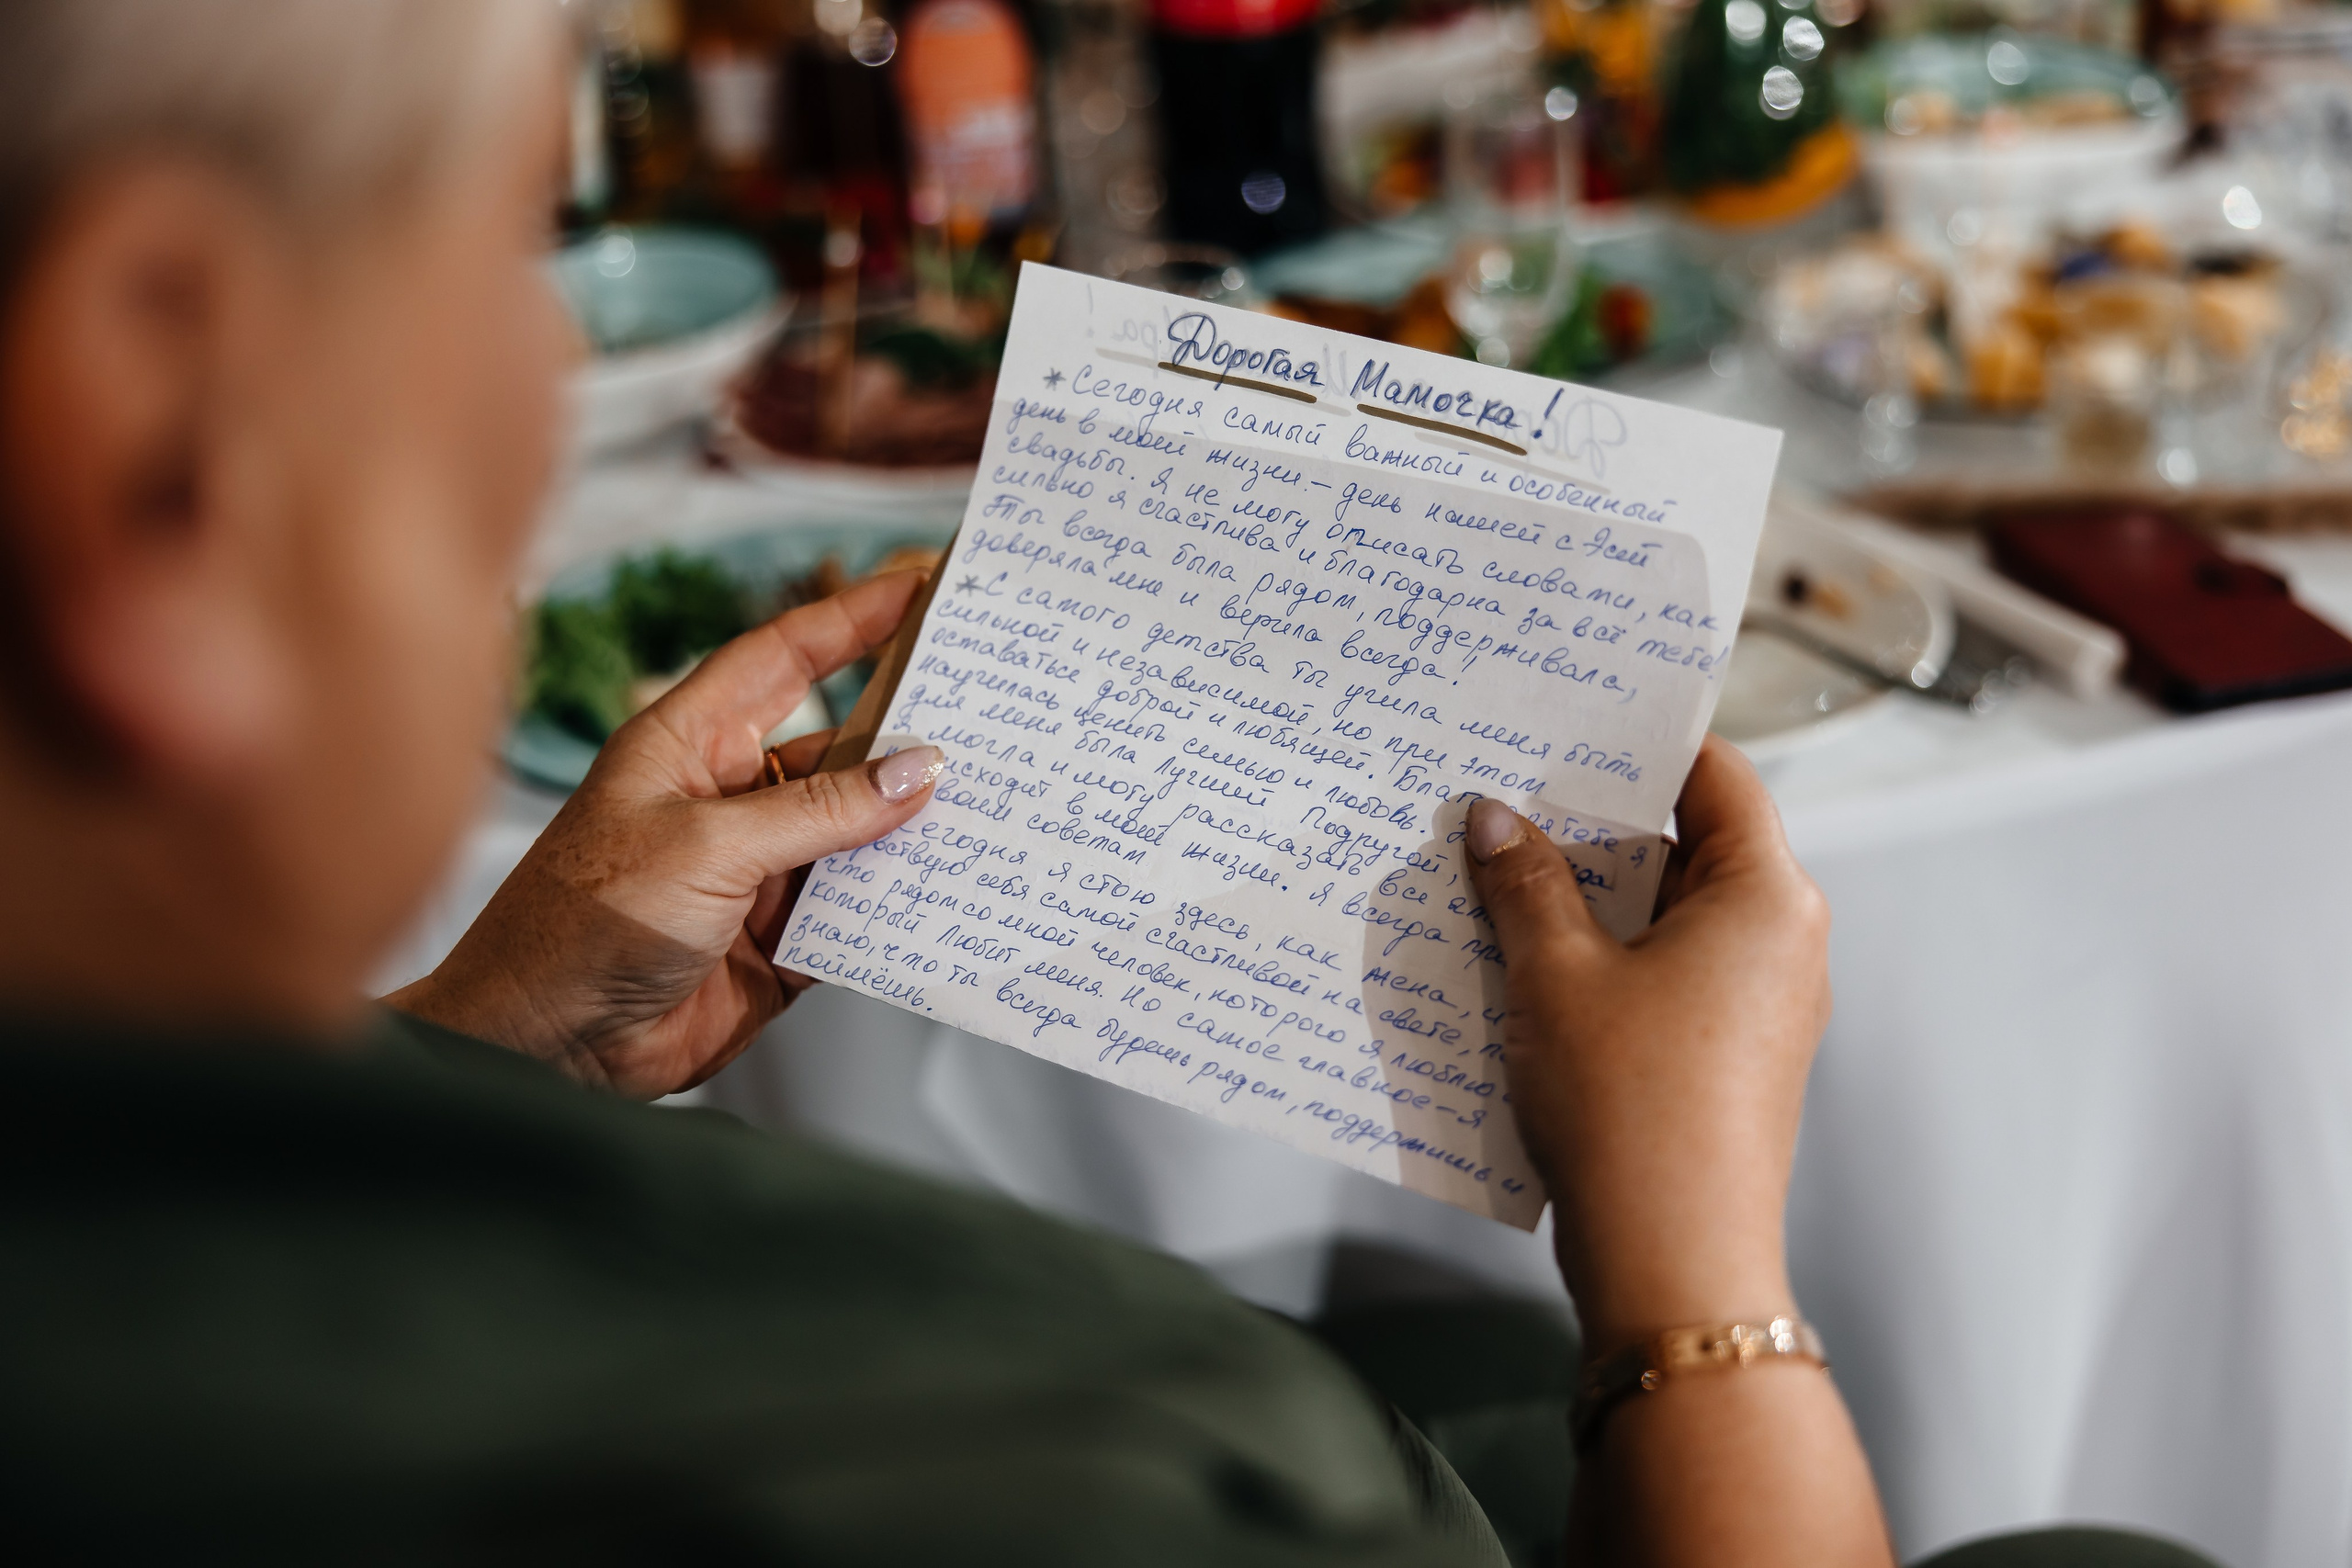 Дорогая Мамочка!
* Сегодня самый важный и особенный
день в моей жизни. – день нашей с Эсей
свадьбы. Я не могу описать словами, как
сильно я счастлива и благодарна за всё тебе!
Ты всегда была рядом, поддерживала,
доверяла мне и верила всегда!
* С самого детства ты учила меня быть
сильной и независимой, но при этом
оставаться доброй и любящей. Тебе я
научилась ценить семью и любовь.
для меня была лучшей Подругой,
Я могла и могу рассказать все
в моей жизни. Я всегда
советам
я стою здесь, как жена, и
себя самой счастливой на свете,
что рядом со мной человек, которого я люблю
который любит меня. Но самое главное – я
знаю, что ты всегда будешь рядом, поддержишь и
поймёшь.